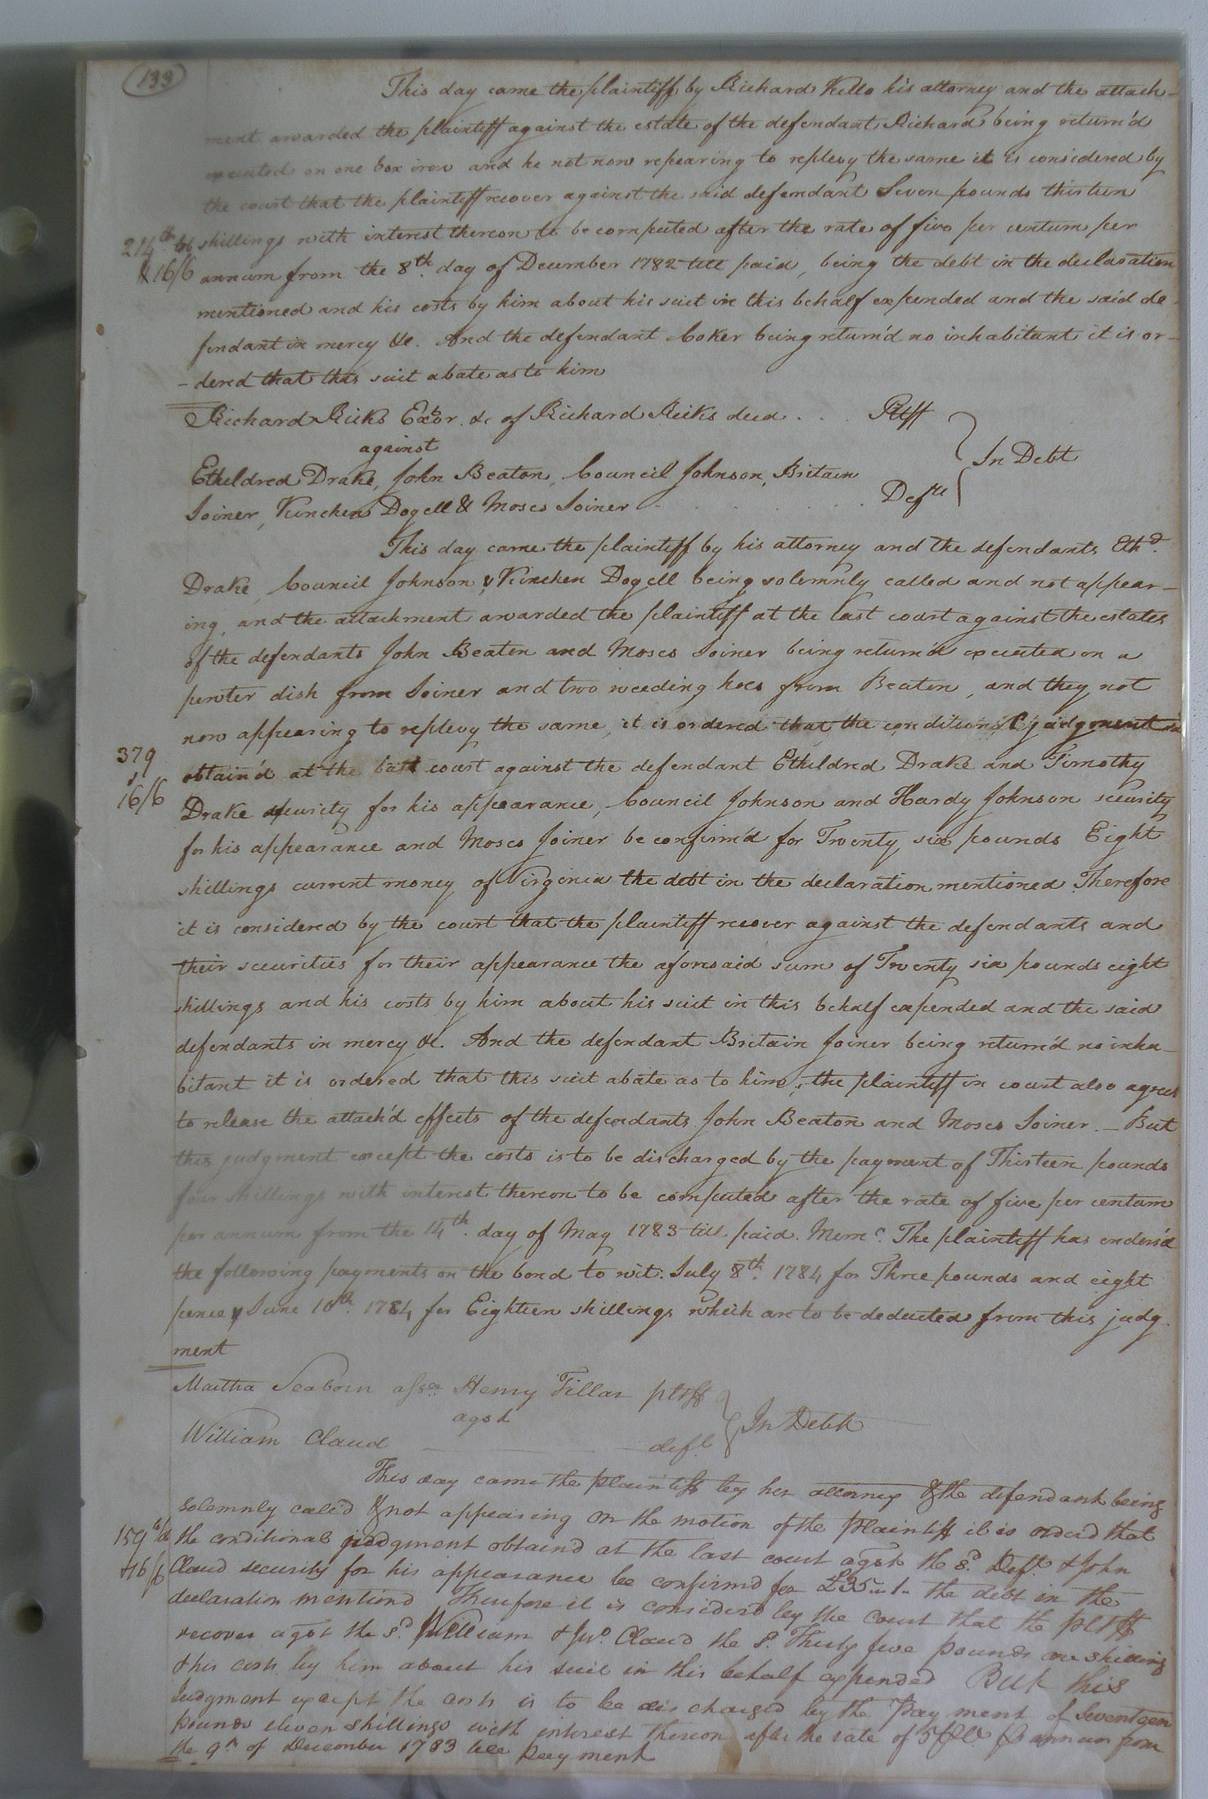 133
This day came the plaintiff by Richard Kello his attorney and the attach-
ment awarded the plaintiff against the estate of the defendant Richard being return'd
executed on one box iron and he not now repearing to replevy the same it is considered by
the court that the plaintiff recover against the said defendant Seven pounds thirteen
shillings with interest thereon to be computed after the rate of five per centum per
annum from the 8th. day of December 1782 till paid, being the debt in the declaration
mentioned and his costs by him about his suit in this behalf expended and the said de-
fendant in mercy &c. And the defendant Coker being return'd no inhabitant it is or-
-dered that this suit abate as to him
214
16/6
Richard Ricks Exor. &c of Richard Ricks decd .. Pltff
against
In Debt
Etheldred Drake, John Beaton, Council Johnson, Britain
Joiner, Kinchen Dogell & Moses Joiner . . . . . Defts
This day came the plaintiff by his attorney and the defendants Ethd.
Drake, Council Johnson, & Kinchen Dogell being solemnly called and not appear-
ing, and the attachment awarded the plaintiff at the last court against the estates
of the defendants John Beaton and Moses Joiner being return'd executed on a
pewter dish from Joiner and two weeding hoes from Beaton, and they not
now appearing to replevy the same, it is ordered that the conditional judgment
obtain'd at the last court against the defendant Etheldred Drake and Timothy
Drake security for his appearance, Council Johnson and Hardy Johnson security
for his appearance and Moses Joiner be confirm'd for Twenty six pounds Eight
shillings current money of Virginia the debt in the declaration mentioned Therefore
it is considered by the court that the plaintiff recover against the defendants and
their securities for their appearance the aforesaid sum of Twenty six pounds eight
shillings and his costs by him about his suit in this behalf expended and the said
defendants in mercy &c. And the defendant Britain Joiner being return'd no inha-
bitant it is ordered that this suit abate as to him, the plaintiff in court also agrees
to release the attach'd effects of the defendants John Beaton and Moses Joiner. - But
this judgment except the costs is to be discharged by the payment of Thirteen pounds
four shillings with interest thereon to be computed after the rate of five per centum
per annum from the 14th. day of May 1783 till paid. Memo. The plaintiff has endors'd
the following payments on the bond to wit. July 8th. 1784 for Three pounds and eight
pence & June 10th. 1784 for Eighteen shillings which are to be deducted from this judg-
ment
379
16/6
Martha Seaborn assee Henry Tillar pltff
agst
In Debt
William Claud deft.
This day came the plaintiff by her attorney & the defendant being
solemnly called & not appearing on the motion of the Plaintiff it is orderd that
the conditional judgment obtaind at the last court agst the sd. Deft & John
Claud security for his appearance be confirmd for £35..1.. the debt in the
declaration mention'd Therefore it is considerd by the Court that the pltff
recover agst the sd. William & Jno. Claud the sd. Thirty five pounds one shilling
& his costs by him about his suit in this behalf expended But this
Judgment except the costs is to be discharged by the Payment of Seventeen
pounds eleven shillings with interest thereon after the rate of 5 annum from
the 9th of December 1783 till payment
159
16/6